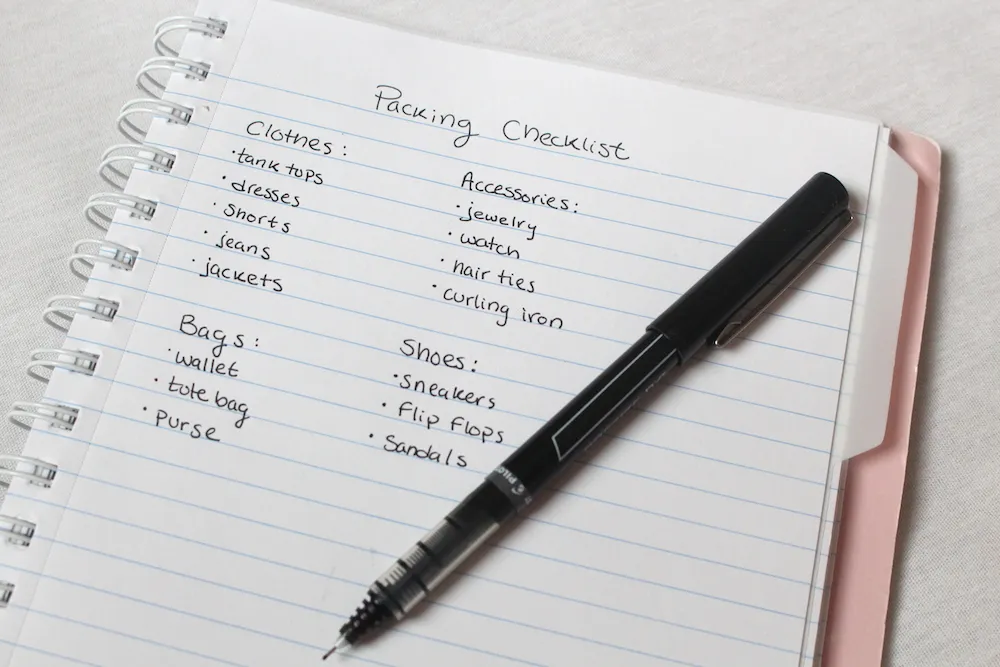 Packing Checklist
Clothes:
· tank tops
· dresses
· Shorts
· jeans
· jackets
Accessories:
· jewelry
· watch
· hair ties
· curling iron
Bags:
· wallet
· tote bag
· purse
Shoes:
· Sneakers
· Flip Flops
· Sandals